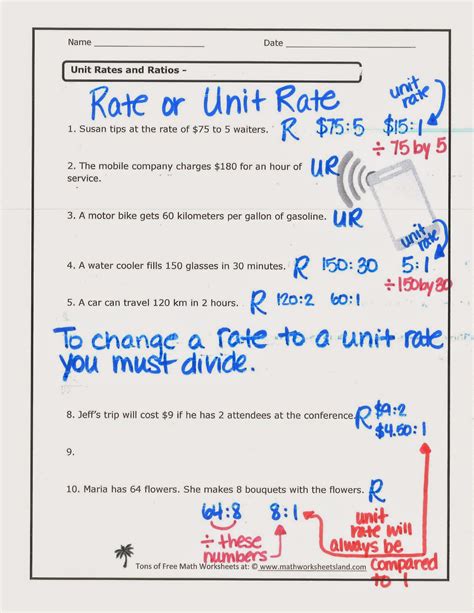 Name
Date
Unit Rates and Ratios -
Rate or Unit Rate
unit
rate
1. Susan tips at the rate of $75 to 5 waiters. R $75:5 $15:1
÷ 75 by 5
2. The mobile company charges $180 for an hour of
service.
UR
3. A motor bike gets 60 kilometers per gallon of gasoline. UR
unit
rate
4. A water cooler fills 150 glasses in 30 minutes. R 150:30 5:1
÷150by 30
5. A car can travel 120 km in 2 hours. R 120:2 60:1
To change a rate to a unit rate
you must divide.
8. Jeff's trip will cost $9 if he has 2 attendees at the conference. R $9:2
$4.50:1
9.
10. Maria has 64 flowers. She makes 8 bouquets with the flowers. R
64:8 8:1
÷ these
numbers
unit
rate will
always be
compared
to 1
Tons of Free Math Worksheets at: © www.mathworksheetsland.com